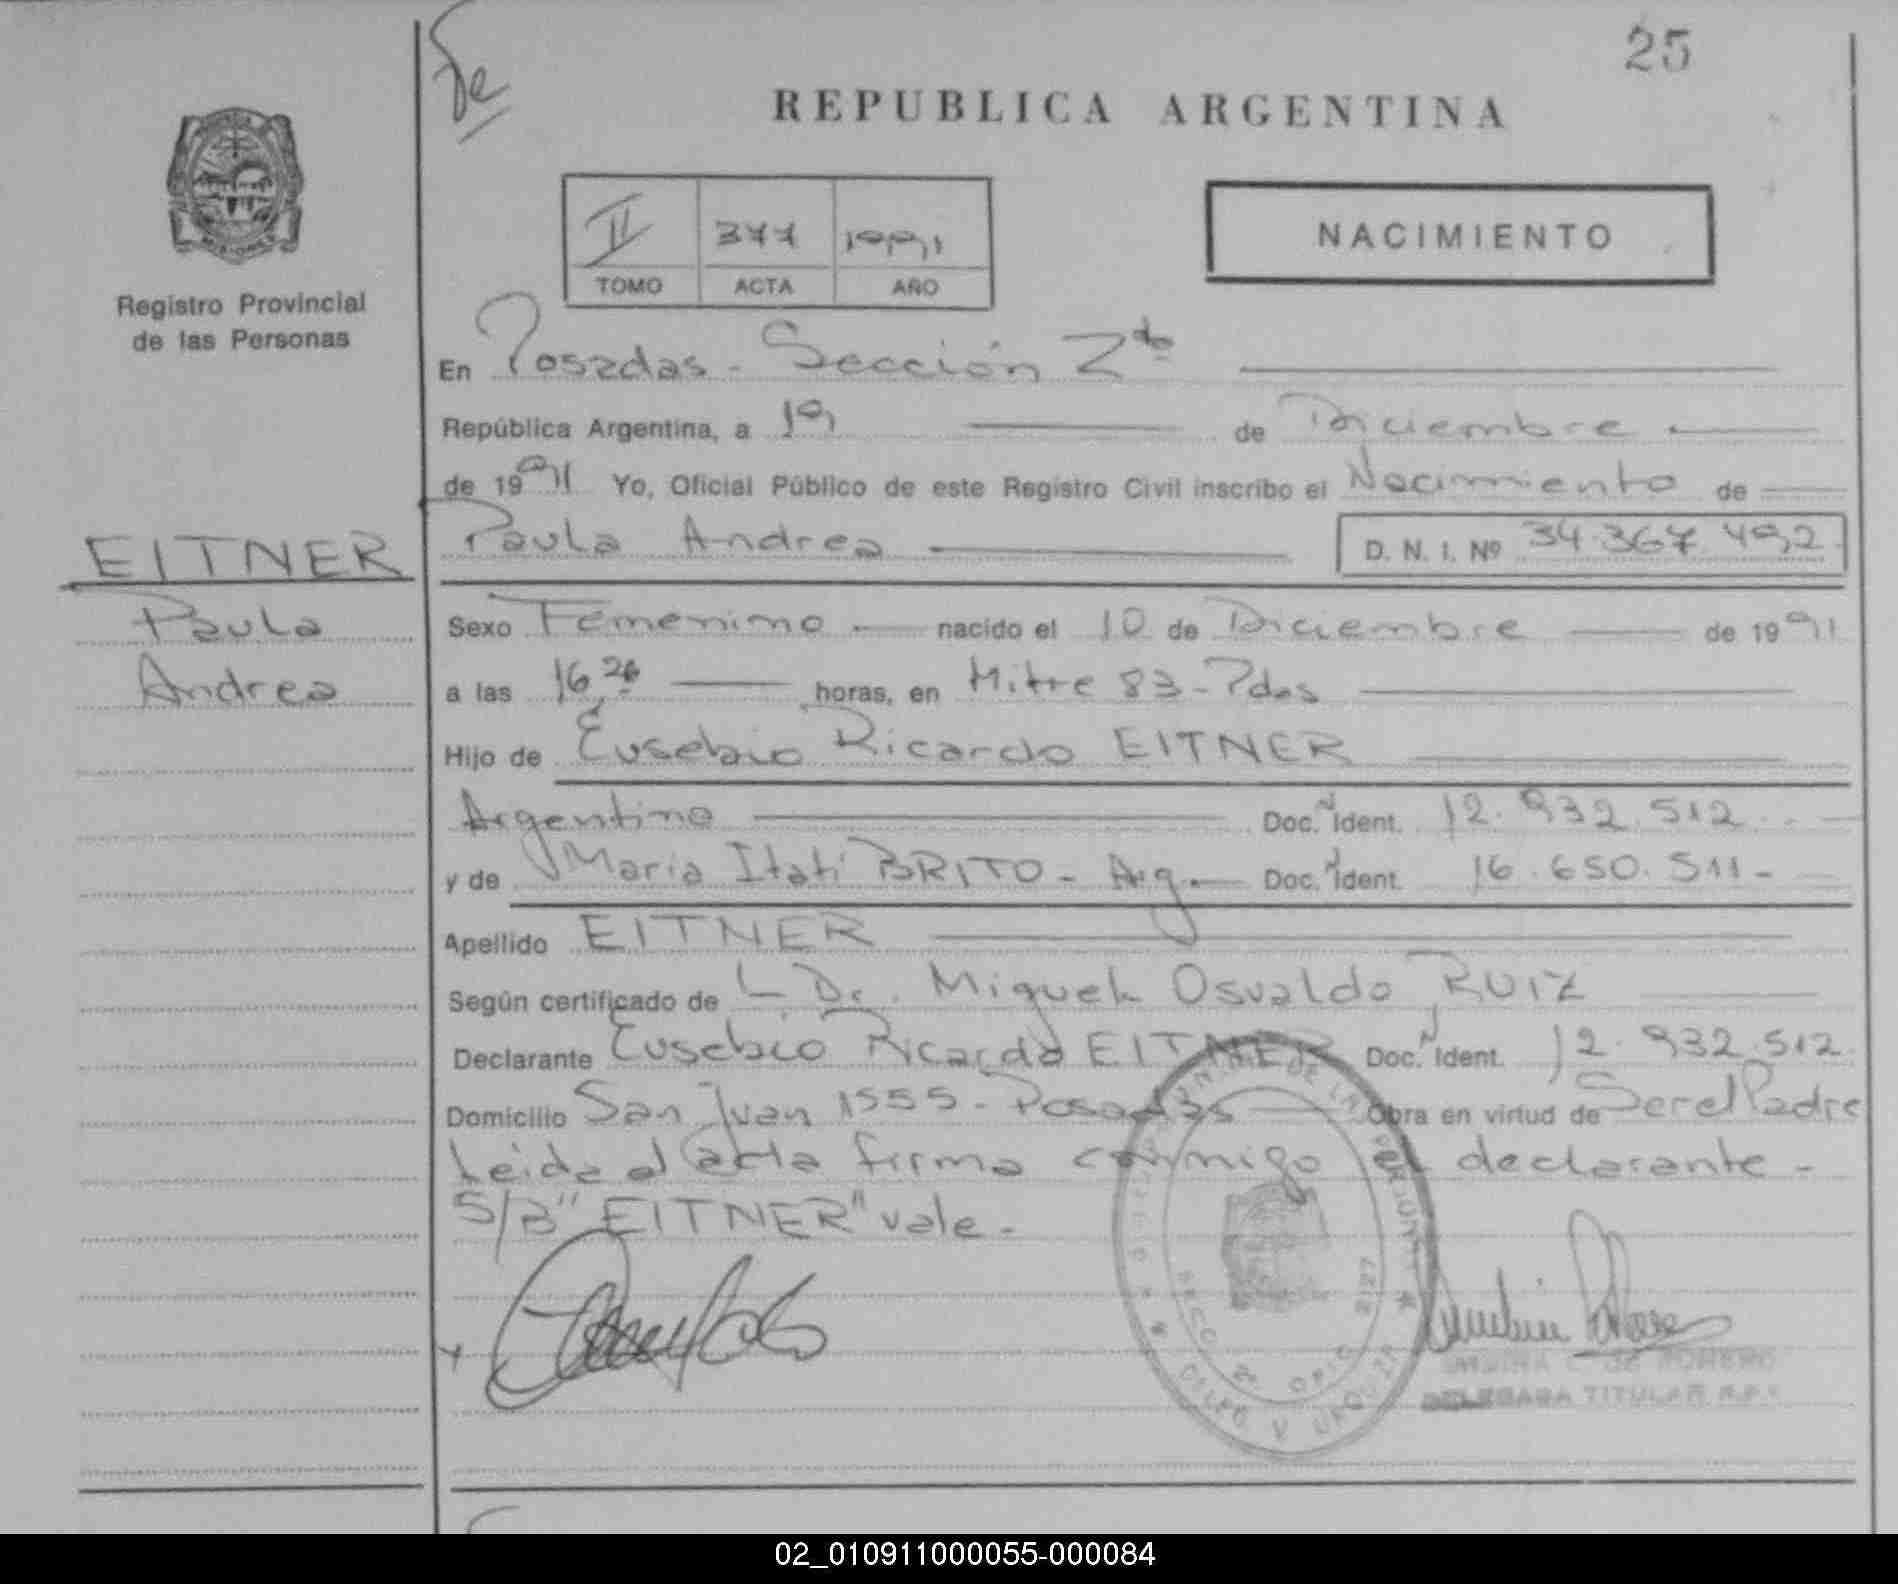 25
REPUBLICA ARGENTINA
II 377 1991
TOMO ACTA AÑO
NACIMIENTO
Registro Provincial
de las Personas
En Posadas - Sección 2da
República Argentina, a 19 de Diciembre
de 1991 Yo, Oficial Público de este Registro Civil inscribo el Nacimiento de
Paula Andrea D. N. I. Nº 34.367.492
EITNER
Paula
Andrea
Sexo Femenino nacido el 10 de Diciembre de 1991
a las 16,20 horas, en Mitre 83 - Pdas
Hijo de Eusebio Ricardo EITNER
Argentino Doc. Ident. 12.932.512
y de Maria Itati BRITO - Arg. Doc. Ident. 16.650.511-
Apellido EITNER
Según certificado de L Dr. Miguel Osvaldo RUIZ
Declarante Eusebio Ricardo EITNER Doc. Ident. 12.932.512
Domicilio San Juan 1555 - Posadas Obra en virtud de Ser el Padre
Leida el acta firma conmigo el declarante -
S/B "EITNER" vale -
DE MORENO
DELEGADA TITULAR R.P.
02_010911000055-000084